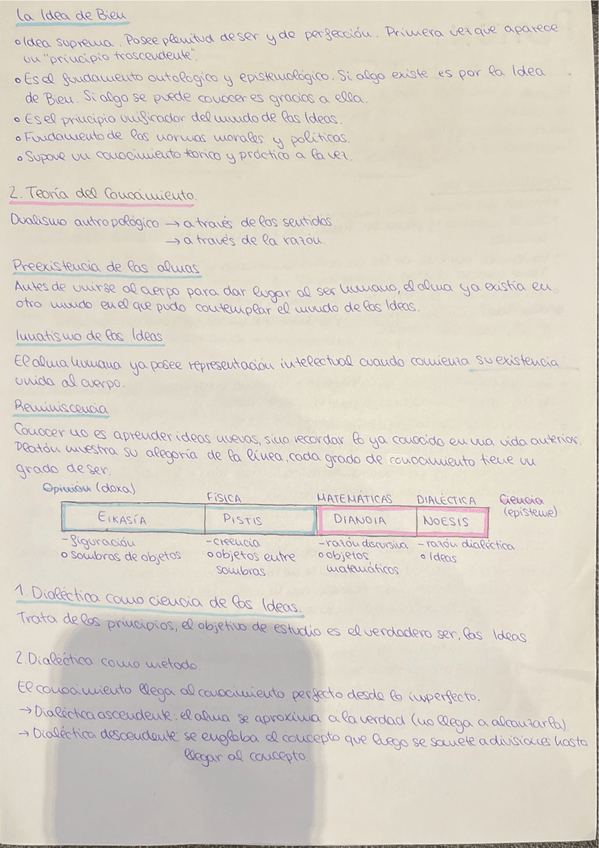 La Idea de Bien
• Idea suprema. Posee plenitud de ser y de perfección. Primera vez que aparece
un "principio trascendente".
• Es el fundamento ontológico y epistemológico. Si algo existe es por la Idea
de Bien. Si algo se puede conocer es gracias a ella.
• Es el principio unificador del mundo de las Ideas.
• Fundamento de las normas morales y políticas.
• Supone un conocimiento teórico y práctico a la vez.
2. Teoría del Conocimiento.
Dualismo antropológico → a través de los sentidos
→ a través de la razón.
Preexistencia de las almas
Antes de unirse al cuerpo para dar lugar al ser humano, el alma ya existía en
otro mundo en el que pudo contemplar el mundo de las Ideas.
Innatismo de las Ideas
El alma humana ya posee representación intelectual cuando comienza su existencia
unida al cuerpo.
Reminiscencia
Conocer no es aprender ideas nuevas, sino recordar lo ya conocido en una vida anterior.
Platón muestra su alegoría de la línea, cada grado de conocimiento tiene un
grado de ser.
Opinión (doxa) FÍSICA MATEMÁTICAS DIALÉCTICA Ciencia
(episteme)
EIKASÍA PISTIS DIANOIA NOESIS
- figuración - creencia - razón discursiva - razón dialéctica
o sombras de objetos o objetos entre o objetos o Ideas
sombras matemáticos
1. Dialéctica como ciencia de las Ideas.
Trata de los principios, el objetivo de estudio es el verdadero ser, las Ideas
2. Dialéctica como metodo.
El conocimiento llega al conocimiento perfecto desde lo imperfecto.
→ Dialéctica ascendente: el alma se aproxima a la verdad (no llega a alcanzarla)
→ Dialéctica descendente se engloba el concepto que luego se somete a divisiones hasta
llegar al concepto